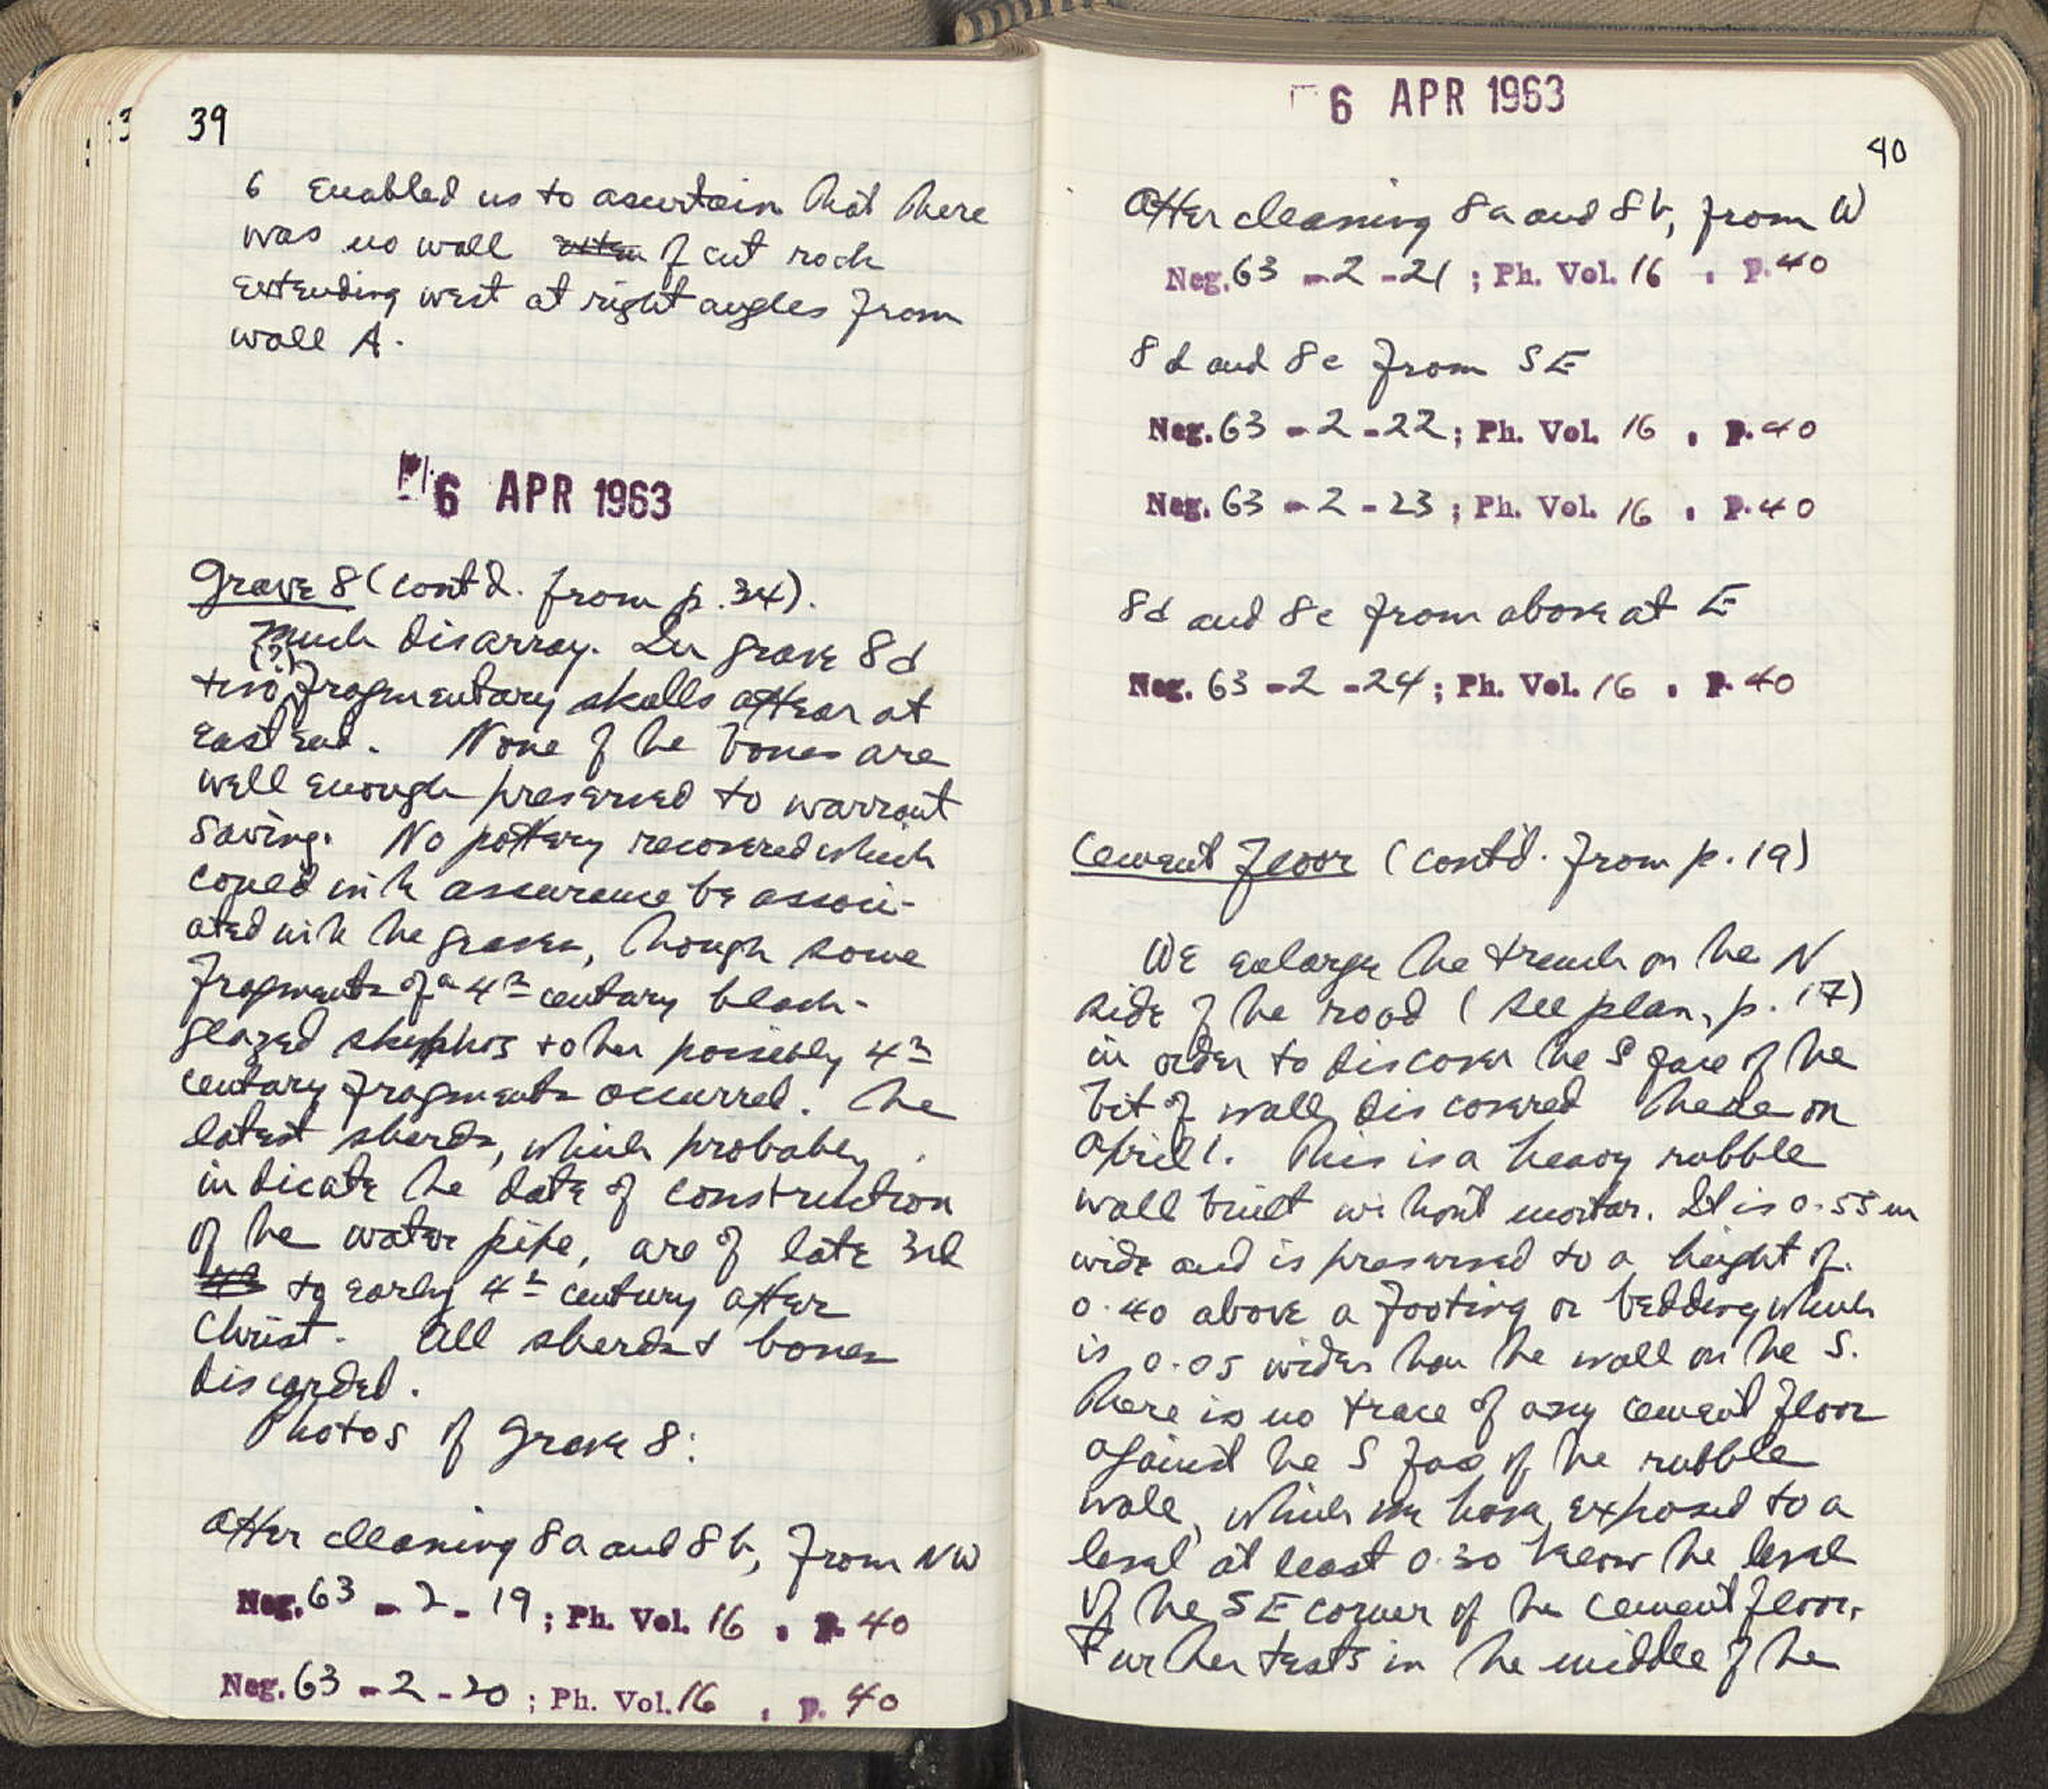 39
6 enabled us to ascertain that there
was no wall of cut rock
extending west at right angles from
wall A.
6 APR 1963
Grave 8 (cont'd. from p. 34).
much disarray. In grave 8d
two (?) fragmentary skulls appear at
east end. None of the bones are
well enough preserved to warrant
saving. No pottery recovered which
could with assurance be associ-
ated with the graves, though some
fragments of a 4th century black-
glazed skyphos + other possibly 4th
century fragments occurred. The
latest sherds, which probably
indicate the date of construction
of the water pipe, are of late 3rd
to early 4th century after
Christ. All sherds + bones
discarded.
Photos of Grave 8:
After cleaning 8a and 8b, from NW
Neg. 63 - 2 - 19 ; Ph. Vol. 16 , p. 40
Neg. 63 - 2 - 20 ; Ph. Vol. 16 , p. 40
6 APR 1963
40
After cleaning 8a and 8b, from W
Neg. 63 - 2 - 21 ; Ph. Vol. 16 , p. 40
8d and 8e from SE
Neg. 63 - 2 - 22 ; Ph. Vol. 16 , p. 40
Neg. 63 - 2 - 23 ; Ph. Vol. 16 , p. 40
8d and 8e from above at E
Neg. 63 - 2 - 24 ; Ph. Vol. 16 , p. 40
Cement Floor (cont'd. from p. 19)
We enlarge the trench on the N
side of the road (see plan, p. 17)
in order to discover the S face of the
bit of wall discovered there on
April 1. This is a heavy rubble
wall built without mortar. It is 0.55 m
wide and is preserved to a height of
0.40 above a footing or bedding which
is 0.05 wider than the wall on the S.
There is no trace of any cement floor
against the S face of the rubble
wall, which we have exposed to a
level at least 0.30 below the level
of the SE corner of the cement floor.
Further tests in the middle of the